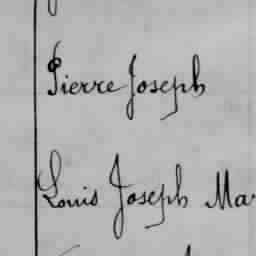 Pierre Joseph
Louis Joseph Ma